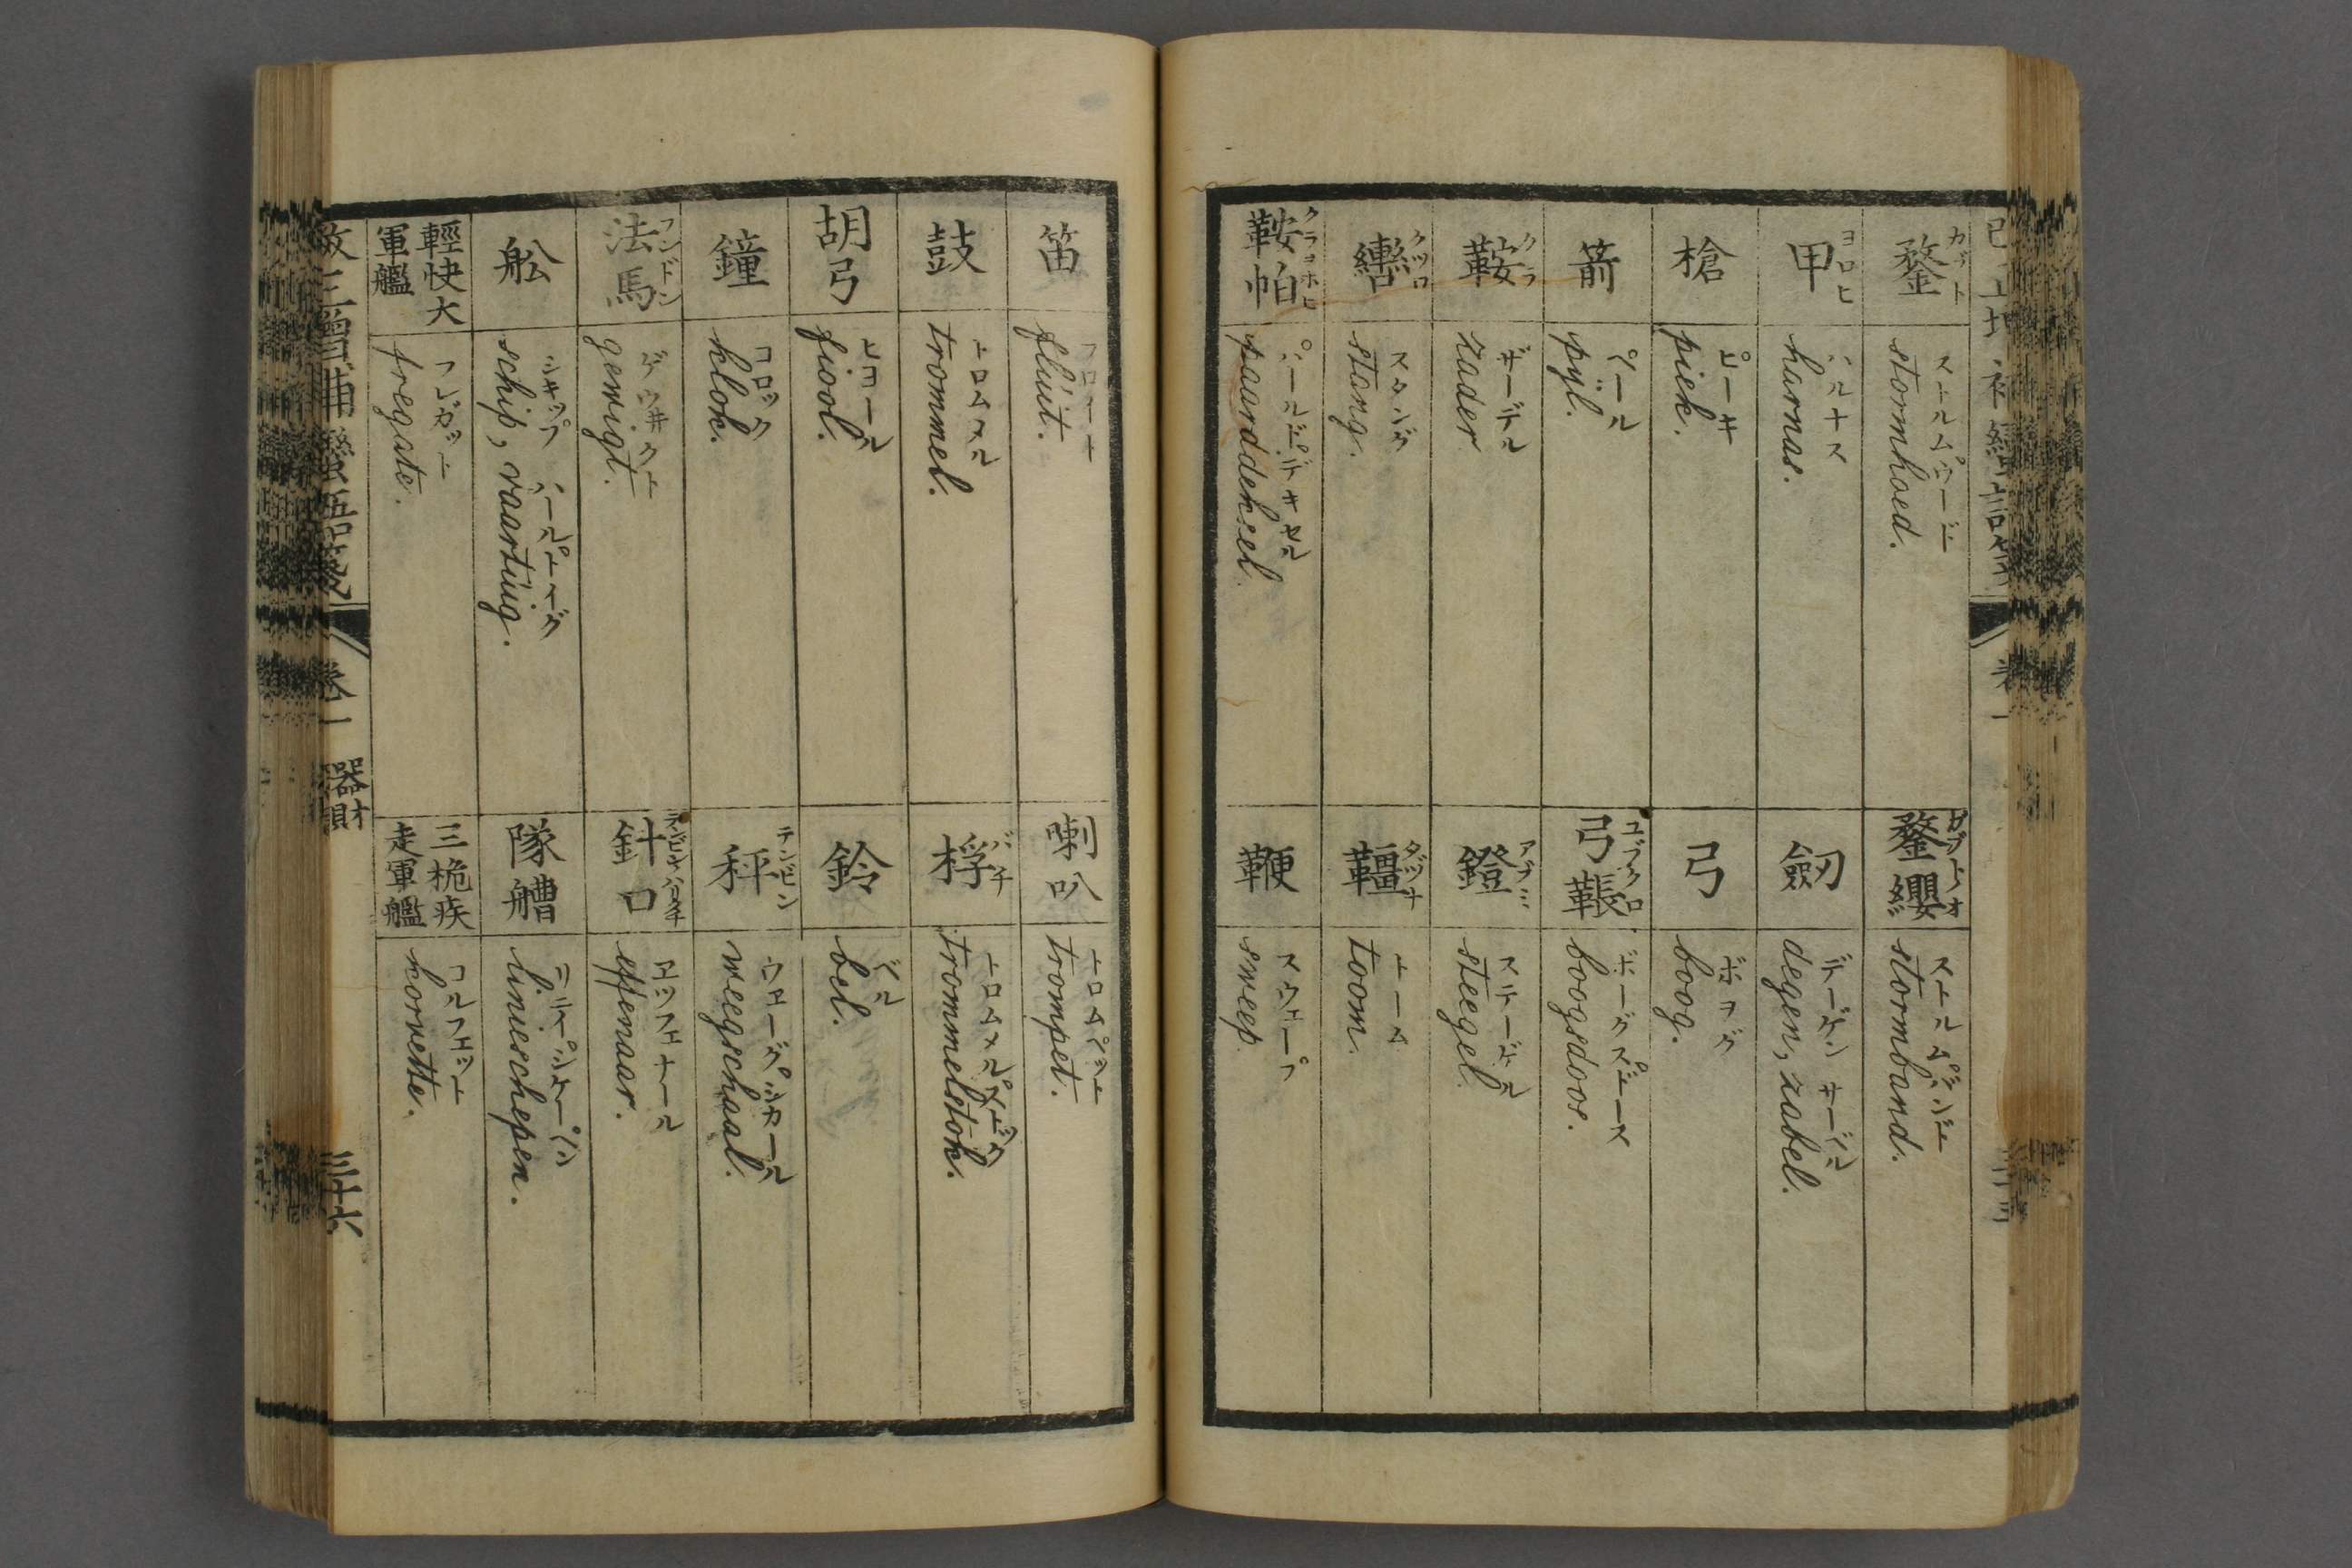 鍪 カブト
ストルムウード
stormhoed.
鍪纓 カブトノオ
ストルムバンド
stormband.
甲 ヨロヒ
ハルナス
harnas.
劔
デーゲン サーベル
degen, zabel.
槍
ピーキ
piek.
弓
ボヲグ
boog.
箭
ペール
pyl.
弓韔 ユブクロ
ボーグスドース
boogsdoos.
鞍 クラ
ザーデル
zader
鐙 アブミ
ステーゲル
steegel.
轡 クツワ
スタング
stang.
韁 タヅナ
トーム
toom.
鞍帕 クラヲホヒ
パールドデキセル
paarddeksel.
鞭
スウェープ
sweep.
笛
フロイト
fluit.
喇叭
トロムペット
trompet.
鼓
トロムメル
trommel.
桴 バチ
トロムメルストック
trommelstok.
胡弓
ヒヨール
fiool.
鈴
ベル
bel.
鐘
コロック
klok.
秤 テンビン
ウエーグシカール
weegschaal.
法馬 フンドン
ゲウ井クト
gewigt.
針口 テンビンノハリクチ
エッフェナール
effenaar.
舩
シキップ パールトイグ
schip, vaartuig.
隊艚
リニーシケーペン
linieschepen.
輕快大軍艦
フレガット
fregate.
三桅疾走軍艦
コルフェット
korvette.
改正増補蠻語箋 卷一 器財 三十六